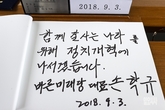 2018. 9. 3.
함께 잘사는 나라
위해 정치개혁에
나서겠습니다.
바른미래당 대표 손학규
2018. 9. 3.